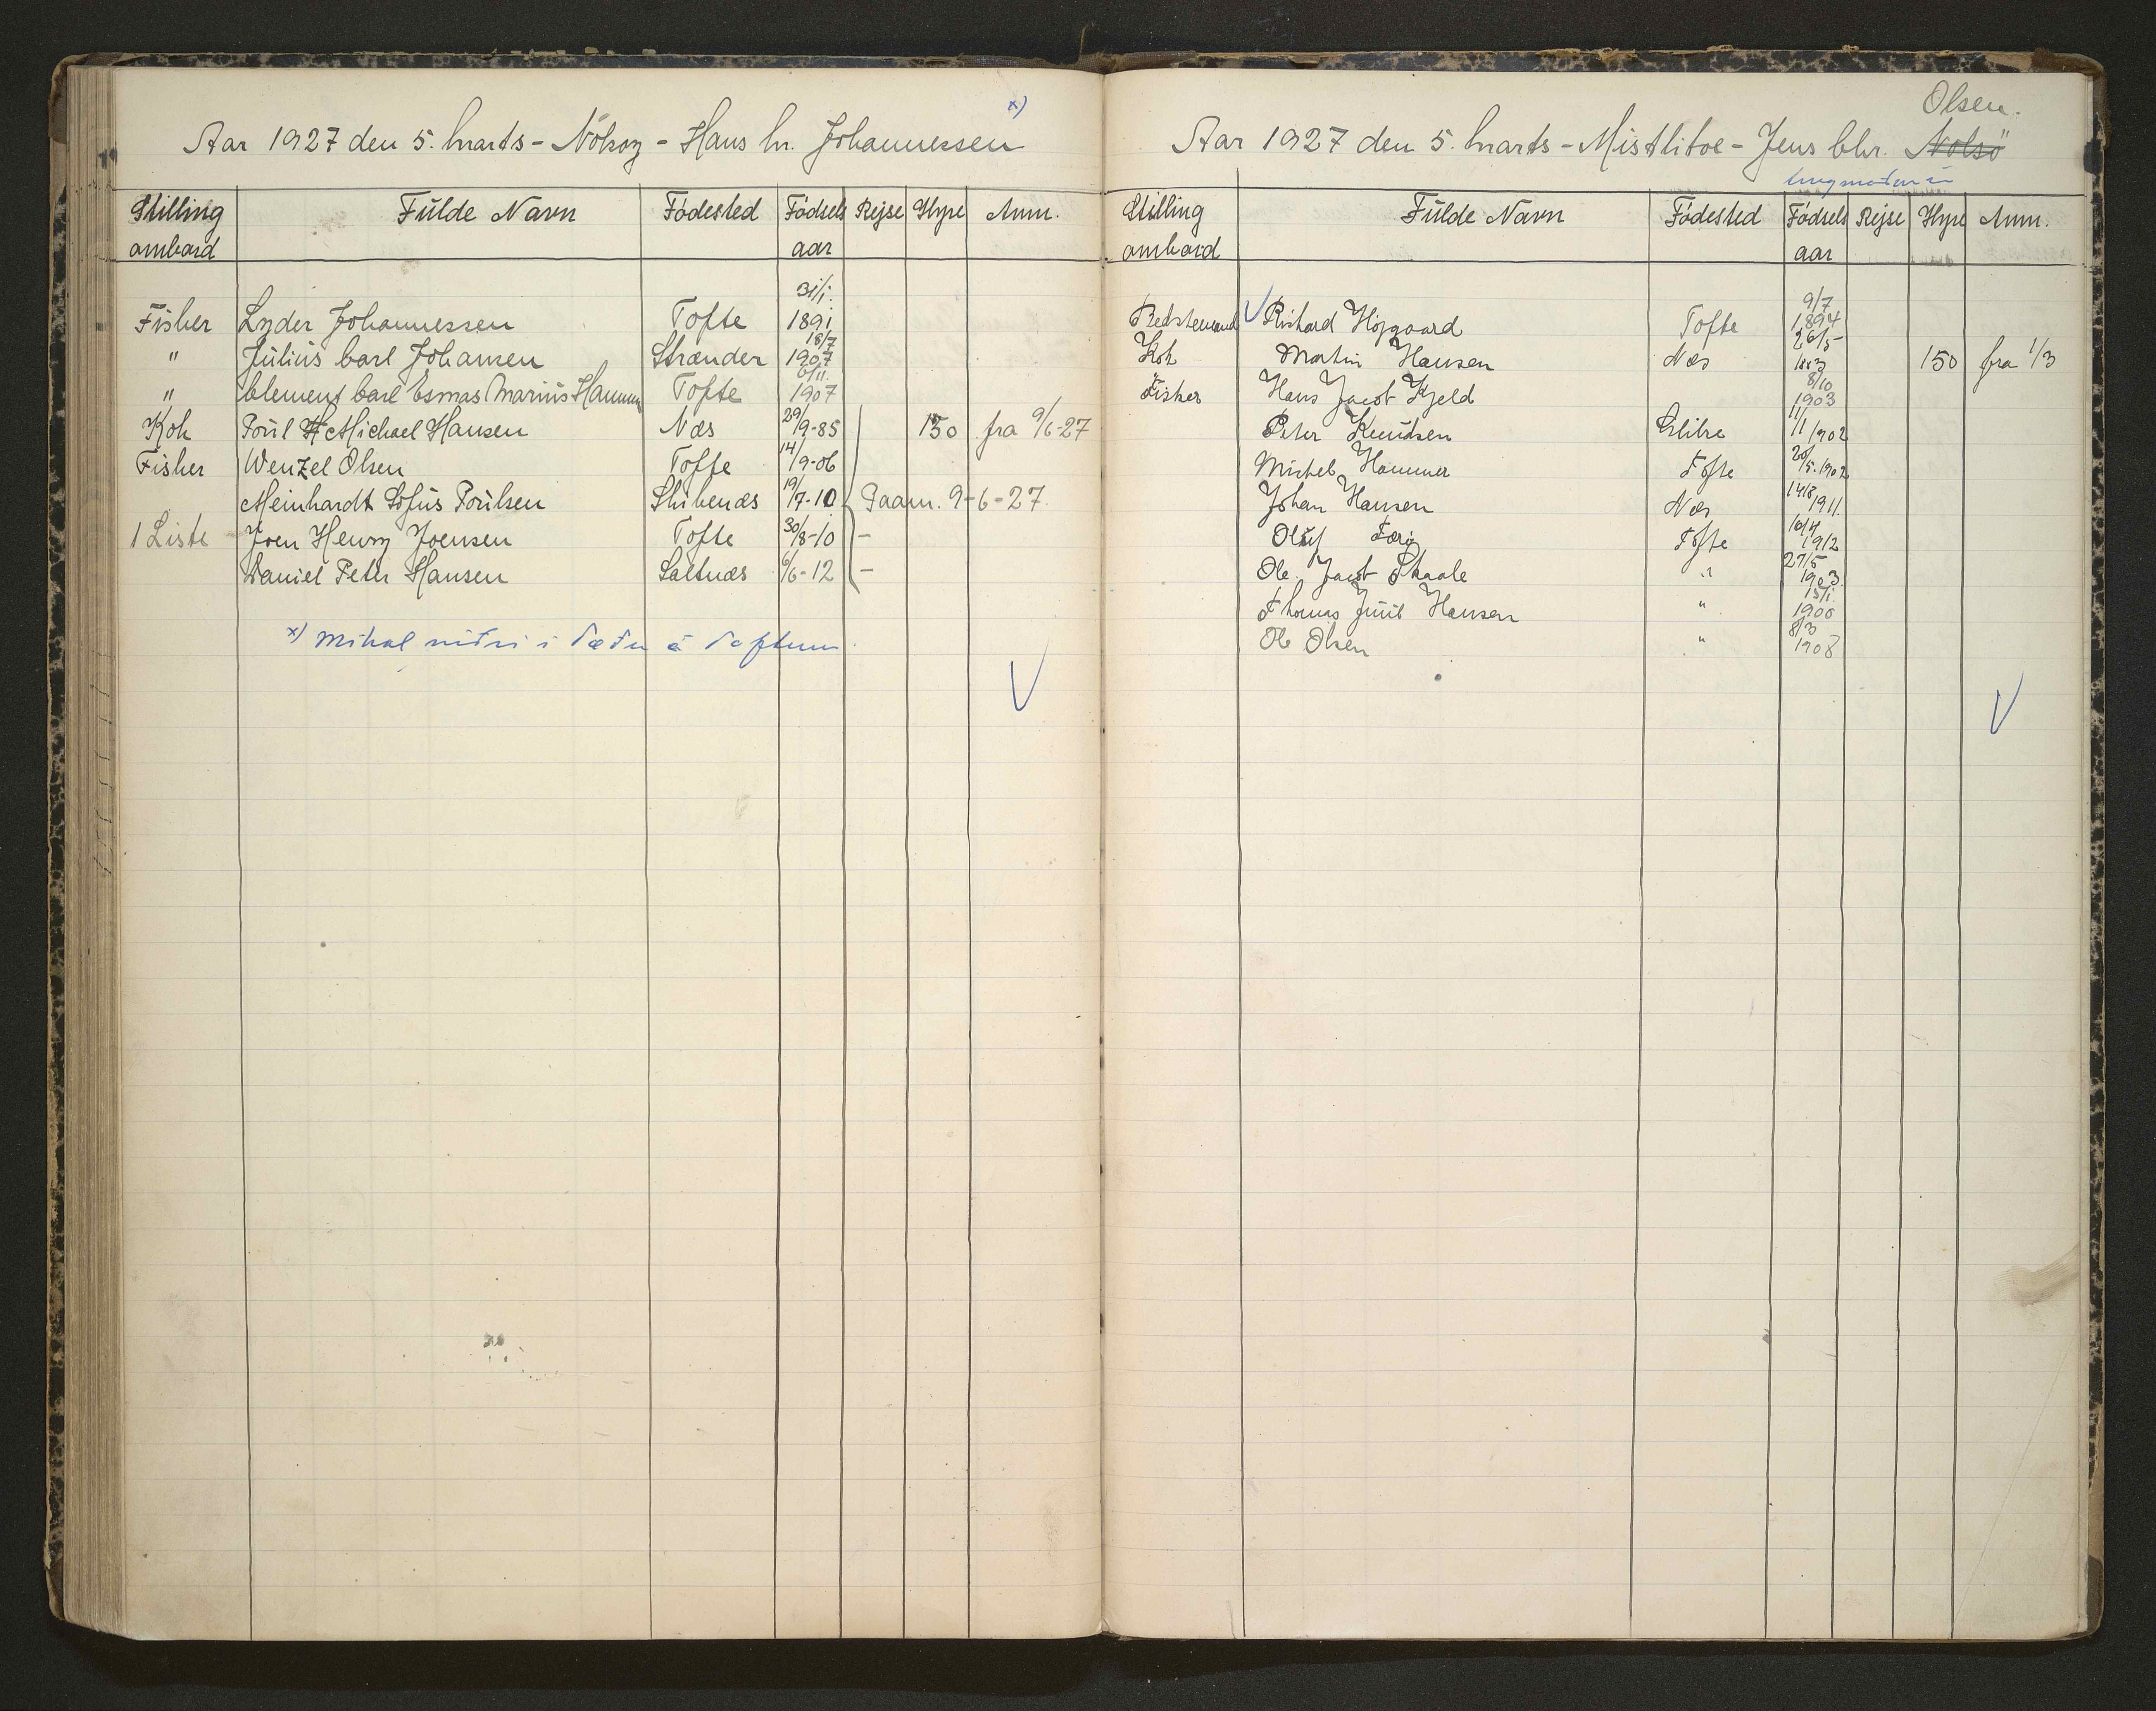 x)
Aar 1927 den 5. Marts - Nólsoy - Hans M. Johannessen
Stilling ombord Fulde Navn Fødested Fødsels aar Rejse Hyre Anm.
Fisker Lyder Johannessen Tofte 31/1. 1891
" Julius Carl Johansen Strænder 18/7 1907
" Clement Carl Esmas Marius Hammer Tofte 6/11. 1907
Kok Poul Michael Hansen Næs 29/9-85 150 fra 9/6-27
Fisker Wenzel Olsen Tofte 14/9-06
Meinhardt Sofus Poulsen Skibenæs 19/7-10 Paam. 9-6-27
1 Liste Joen Henry Joensen Tofte 30/8-10 -
Daniel Peter Hansen Saltnæs 6/6-12 -
x) Mikal niðri i á
Olsen.
Aar 1927 den 5. Marts - Mistlitoe - Jens Chr. Nolsö
Stilling ombord Fulde Navn Fødested Fødsels aar Rejse Hyre Anm.
Bedstemand Richard Højgaard Tofte 9/7 1894
Kok Martin Hansen Næs 26/5- 1883 150 fra 1/3
Fisker Hans Jacob Kjeld 8/10 1903
Peter Knudsen Glibre 11/11 1902
Michel Hammer Tofte 20/5. 1902
Johan Hansen Næs 14/8 1911.
Oluf Færø Tofte 10/4 1912
Ole Jacob Skaale " 27/5 1903
Thomas Juul Hansen " 15/1. 1900
Ole Olsen " 8/3 1908